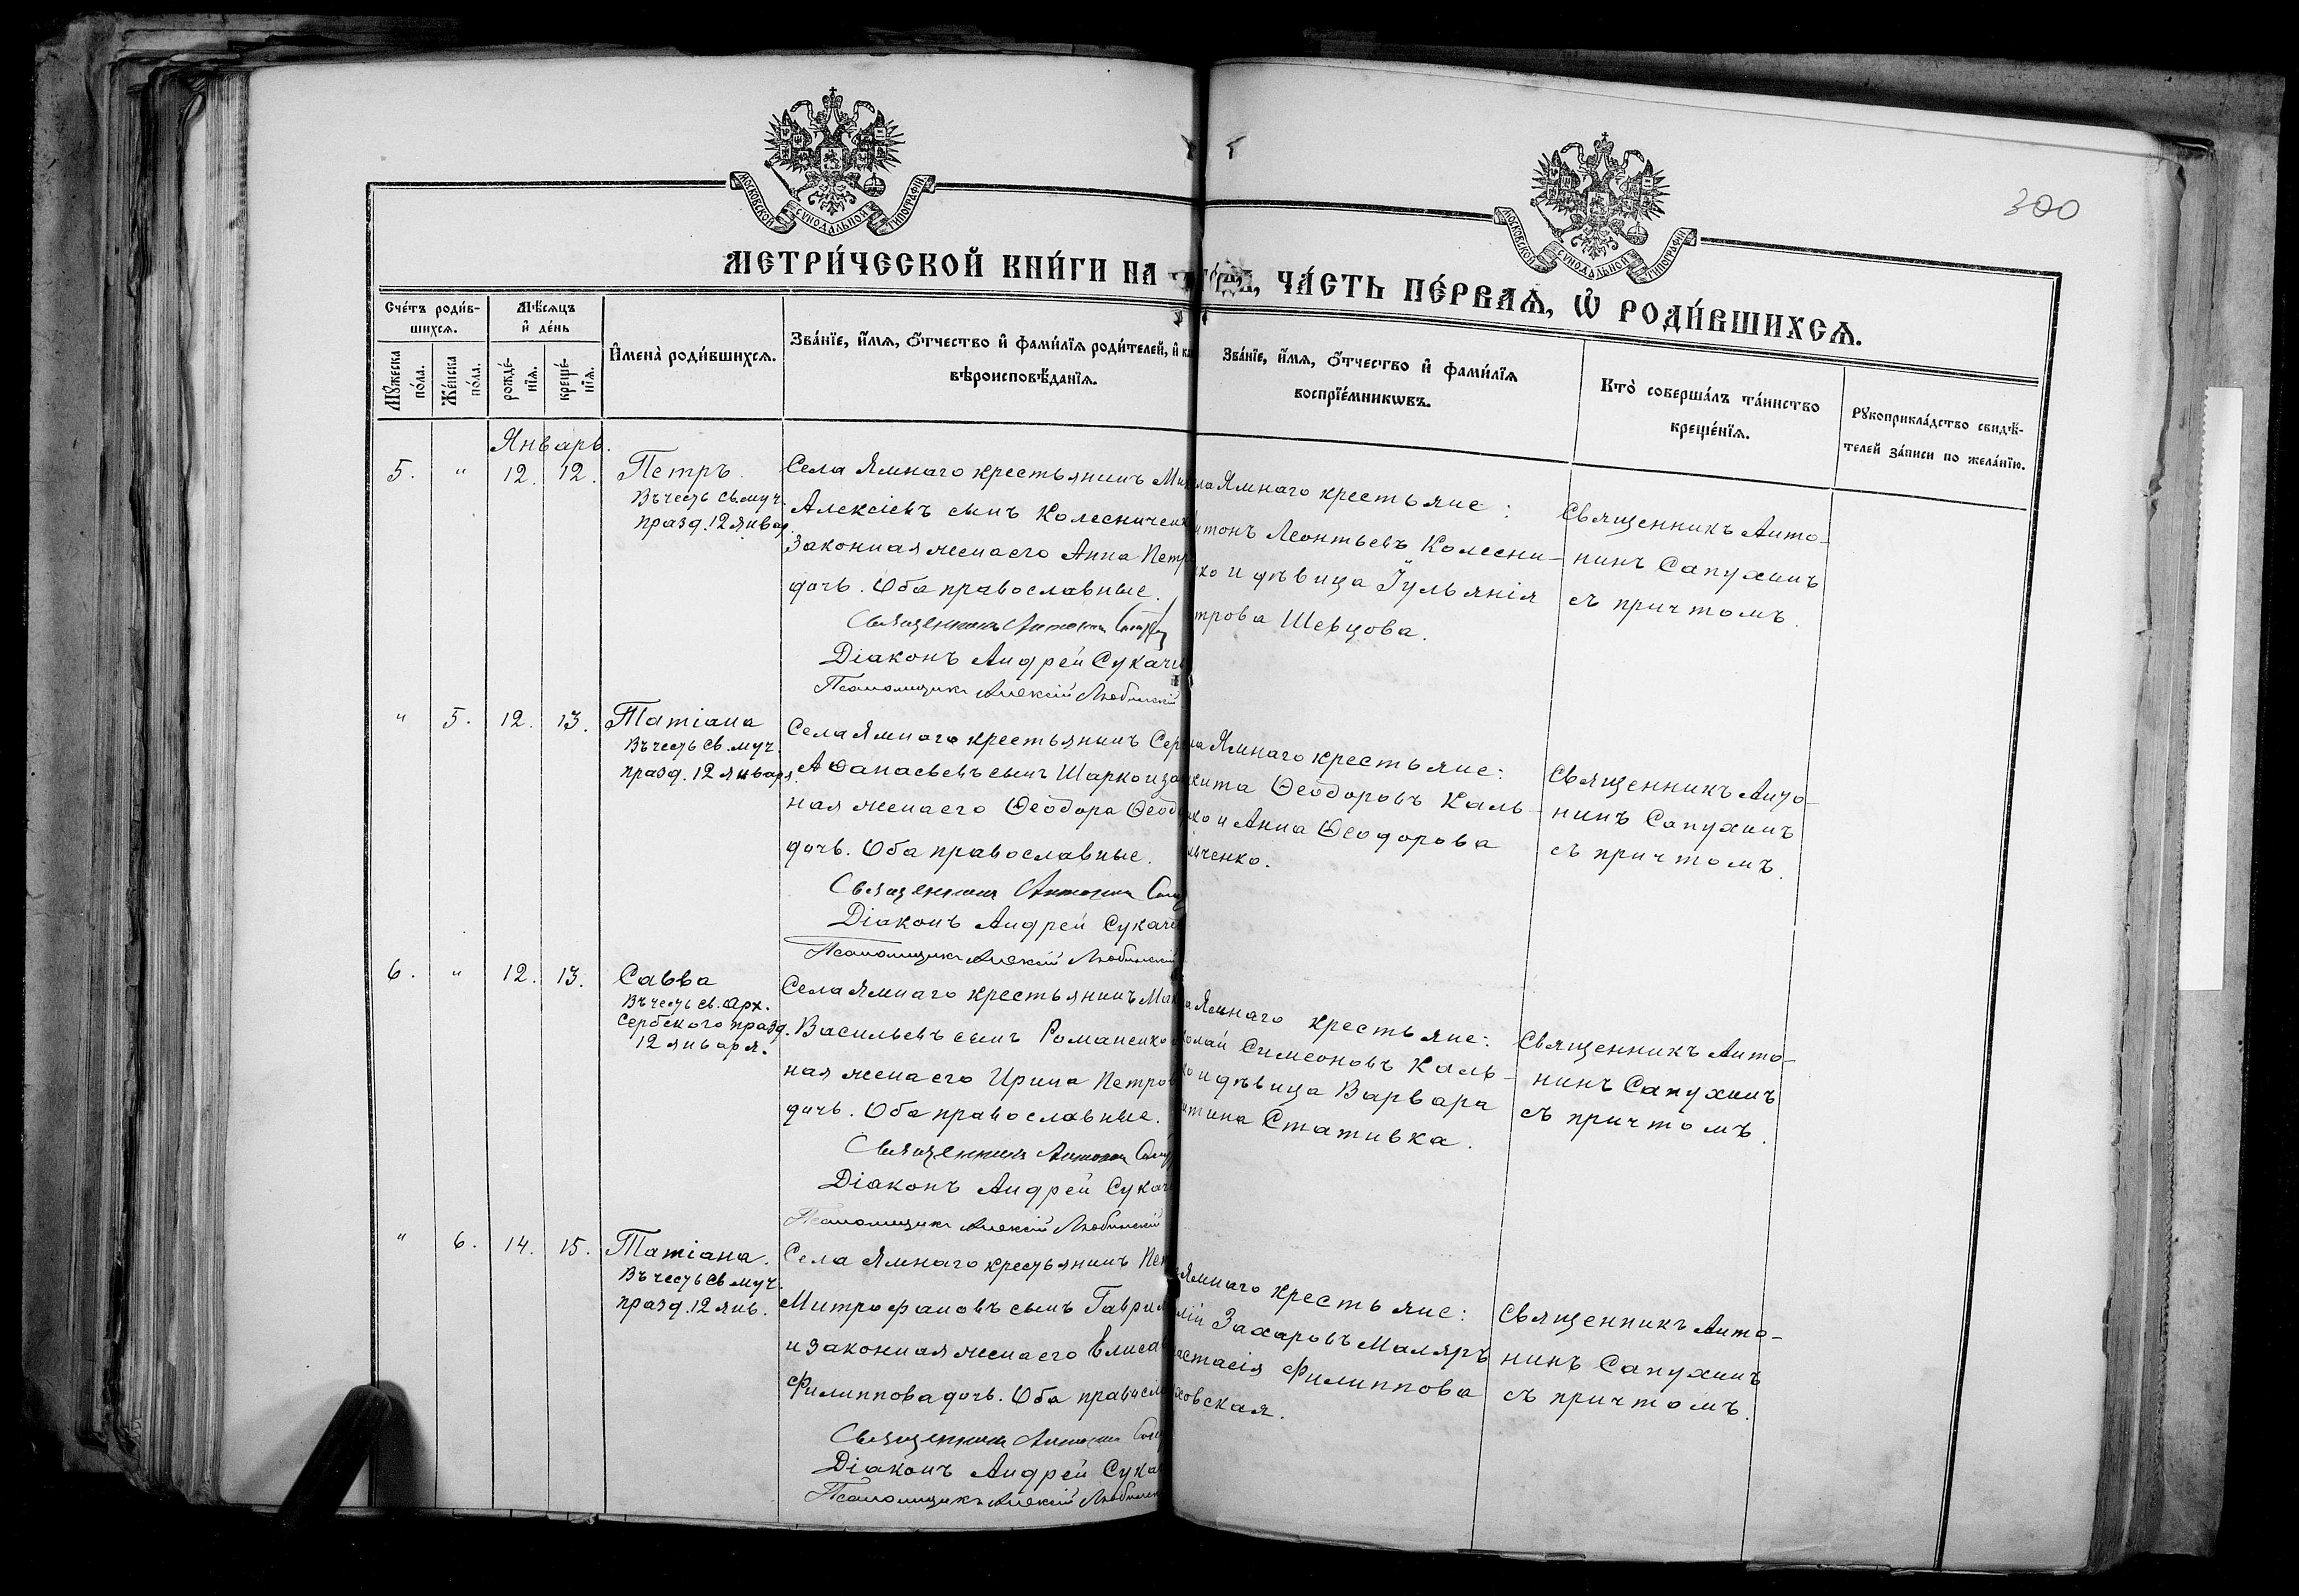 300
МОСКОВСКОЙ СѴНОДАЛЬНОЙ ТИПОГРАФІИ
МОСКОВСКОЙ СѴНОДАЛЬНОЙ ТИПОГРАФІИ
МЕТРИ́ЧЕСКОЙ КНИ́ГИ НА
ЧА́СТЬ ПЕ́РВАѦ, Ѽ РОДИ́ВШИХСѦ.
Сче́тъ роди́в-
шихсѧ.
Мѣ́сѧцъ
и҆ де́нь
Мꙋ́жеска по́ла.
Же́нска по́ла.
рожде́-
нїѧ.
креще́-
нїѧ.
И҆мена̀ роди́вшихсѧ.
Зва́нїе, и҆́мѧ, ѻ҆́тчество и҆ фами́лїѧ роди́телей, и҆
вѣроисповѣ́данїѧ.
Зва́нїе, и҆́мѧ, ѻ҆́тчество и҆ фами́лїѧ
воспрїе́мникѡвъ.
Кто̀ соверша́лъ та́инство
креще́нїѧ.
Рꙋкоприкла́дство свидѣ́-
телей за́писи по жела́нїю.
Январь.
5. " 12. 12. Петръ
Въ честь св. муч.
празд. 12 январ.
Села Ямнаго крестьянинъ
Алексіевъ сынъ Колесничен
Законная жена его Анна Петр
дочь. Оба православные.
Священникъ Антонин
Діаконъ Андрей Сукаче
Псаломщикъ Алексій Любинскій
Ямнаго крестьяне:
Леонтьевъ Колесни-
ко и дѣвица Іульянія
трова Шевцова.
Священникъ Анто-
нинъ Сапухинъ
съ причтомъ.
" 5. 12. 13. Татіана
Въ честь св. муч.
празд. 12 января.
Села Ямнаго крестьянинъ Сер
Аѳанасьевъ сынъ Шарко и зак
ная жена его Ѳеодора Ѳеод
дочь. Оба православные.
Священникъ Антонин
Діаконъ Андрей Сукаче
Псаломщикъ Алексій Любинскій
Ямнаго крестьяне:
кита Ѳеодоровъ Каль-
ко и Анна Ѳеодорова
льченко.
Священникъ Анто-
нинъ Сапухинъ
съ причтомъ.
6. " 12. 13. Савва
Въ честь св. Арх.
Сербскаго празд.
12 января.
Села Ямнаго крестьянинъ
Васильевъ сынъ Романенко
ная жена его Ирина Петров
дочь. Оба православные.
Священникъ Антонин
Діаконъ Андрей Сукаче
Псаломщикъ Алексій Любинскій
Ямнаго крестьяне:
колай Симеоновъ Каль-
ко и дѣвица Варвара
итина Стативка.
Священникъ Анто-
нинъ Сапухинъ
съ причтомъ.
" 6. 14. 15. Татіана.
Въ честь св. муч.
празд. 12 янв.
Села Ямнаго крестьянинъ Пе
Митрофановъ сынъ Гаврил
и законная жена его Елиса
Филиппова дочь. Оба правосл
Священникъ Антонин
Діаконъ Андрей Сука
Псаломщикъ Алексій Любинск
Ямнаго крестьяне:
лій Захаровъ Маляръ
астасія Филиппова
ховская.
Священникъ Анто-
нинъ Сапухинъ
съ причтомъ.